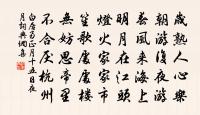 歲熟人心樂
朝游復夜游
春風來海上
明月在江頭
燈火家家市
笙歌處處樓
無妨思帝里
不合厭杭州
白居易正月十五日夜
月詞典網集